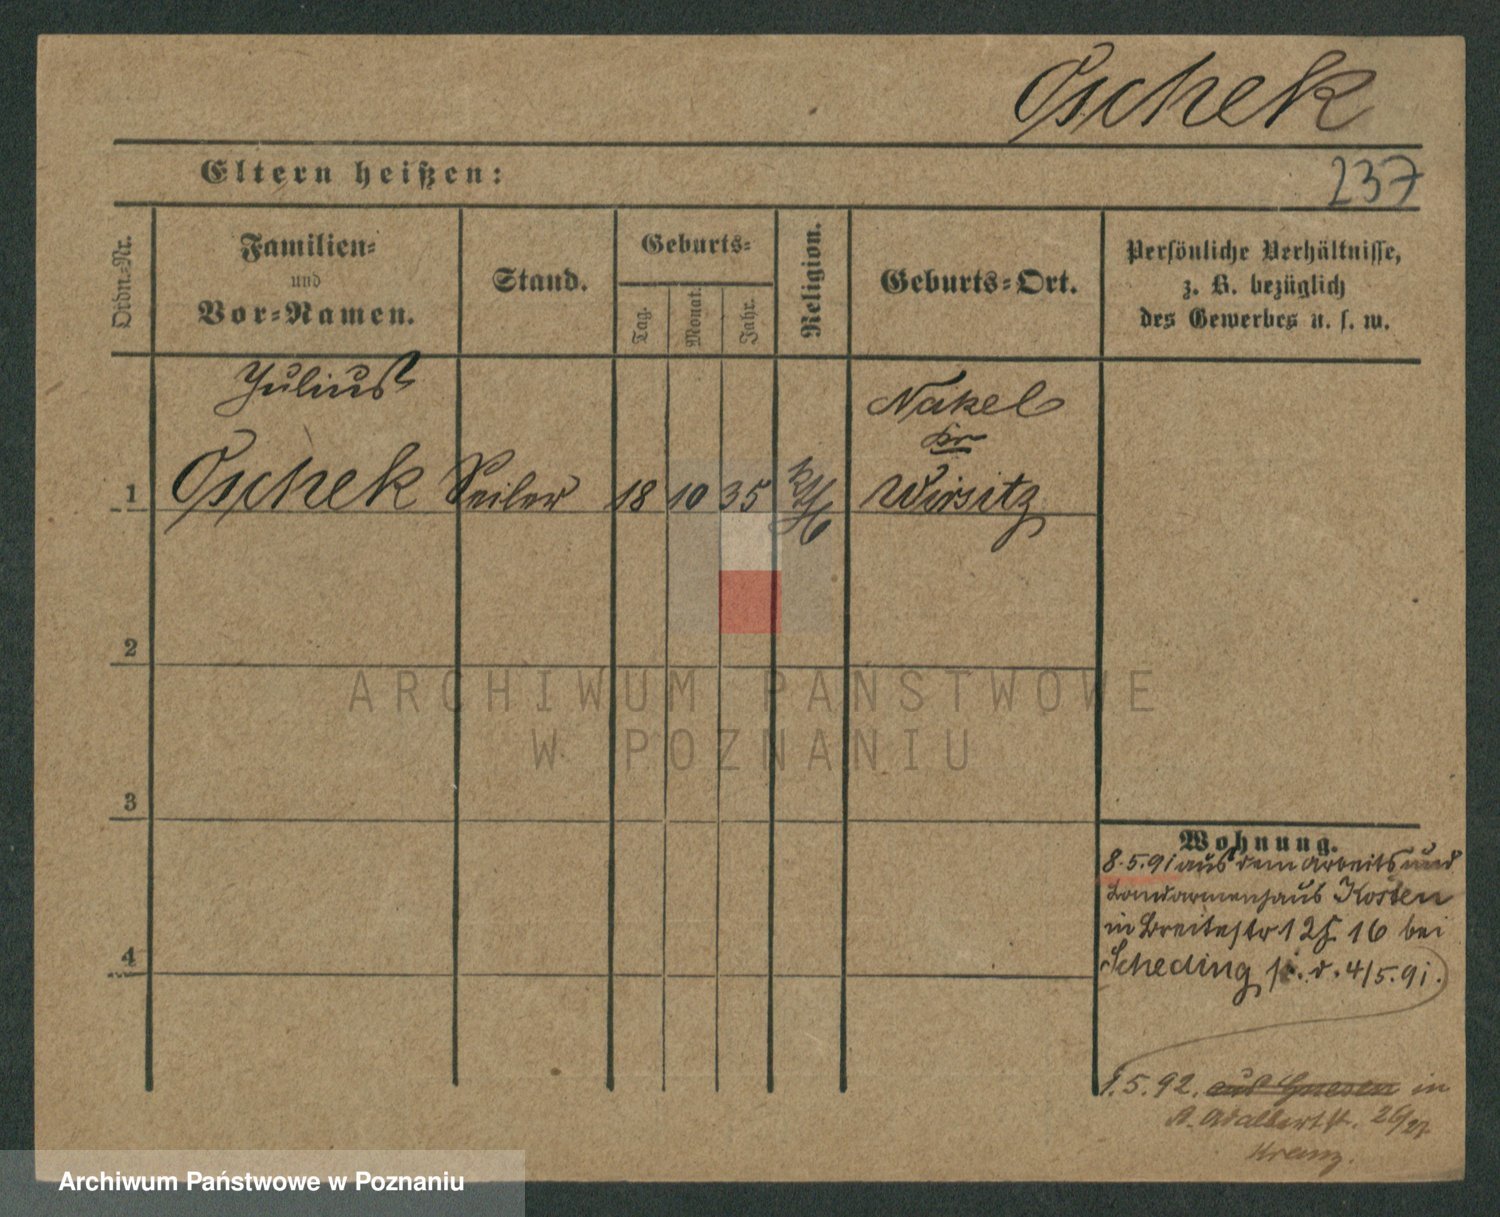 Oschek
Eltern heißen:
237
Ordn.=Nr.
Familien=
und
Vor=Namen.
Stand.
Geburts=
Tag.
Monat.
Jahr.
Religion.
Geburts=Ort.
Persönliche Verhältnisse,
z. B. bezüglich
des Gewerbes u. s. w.
Julius
Nakel
Kr
1 Oschek Seiler 18 10 35 Wirsitz
2
ARCHIWUM PAŃSTWOWE
W POZNANIU
3
Wohnung.
8.5.91 aus dem Arbeits und
Landarmenhaus Kosten
in Breitestr 12 16 bei
4
Scheding s. d. 4/5.91.
1.5.92. aus Gnesen in
A. Adalbertst. 26/27
Kranz.
Archiwum Państwowe w Poznaniu